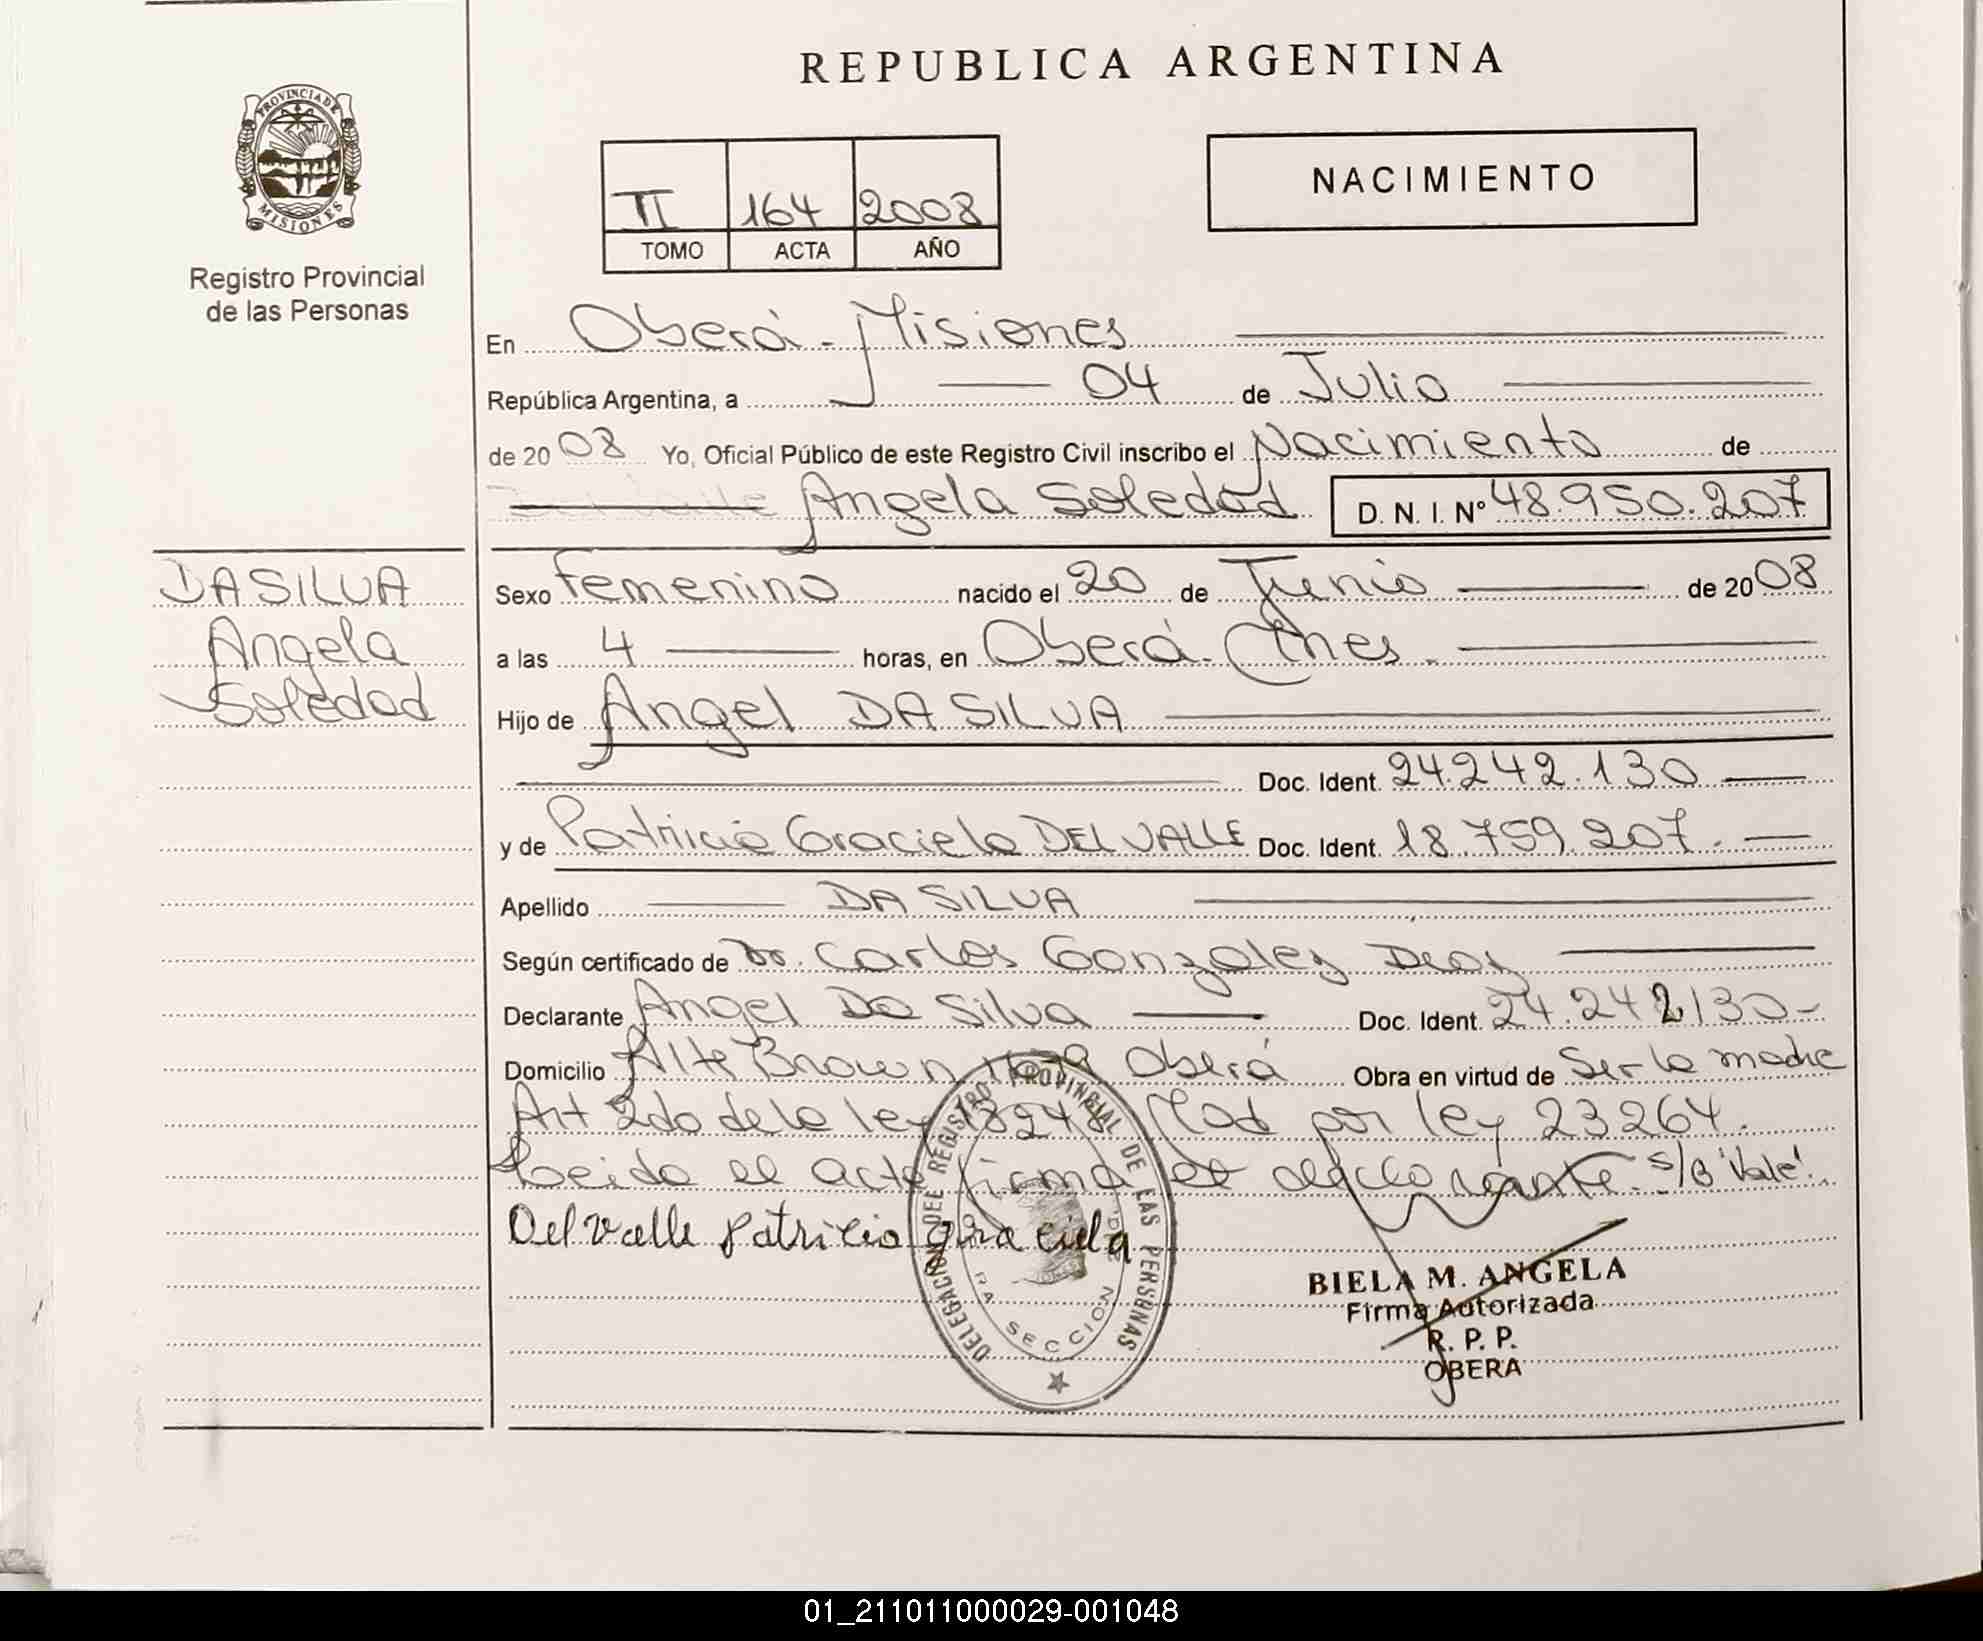 REPUBLICA ARGENTINA
PROVINCIA DE
MISIONES
Registro Provincial
de las Personas
II 164 2008
TOMO ACTA AÑO
NACIMIENTO
En Oberá - Misiones
República Argentina, a 04 de Julio
de 2008 Yo, Oficial Público de este Registro Civil inscribo el Nacimiento de
Angela Soledad D. N. I. Nº 48.950.207
DA SILVA
Angela
Soledad
Sexo Femenino nacido el 20 de Junio de 2008
a las 4 horas, en Oberá - Mnes.
Hijo de Angel DA SILVA
Doc. Ident. 24.242.130
y de Patricia Graciela DEL VALLE Doc. Ident. 18.759.207.
Apellido DA SILVA
Según certificado de Dr. Carlos Gonzalez
Declarante Angel Da Silva Doc. Ident. 24.242130-
Domicilio Alte Brown Oberá Obra en virtud de Ser la madre
Art 2do de la ley 18248 Mod por ley 23264.
Leido el acta firma el declarante. s/B "Vale".
Del valle Patricia graciela
DELEGACION DE REGISTRO PROVINCIAL DE LAS PERSONAS
RA SECCION
BIELA M. ANGELA
Firma Autorizada
R. P. P.
OBERA
01_211011000029-001048